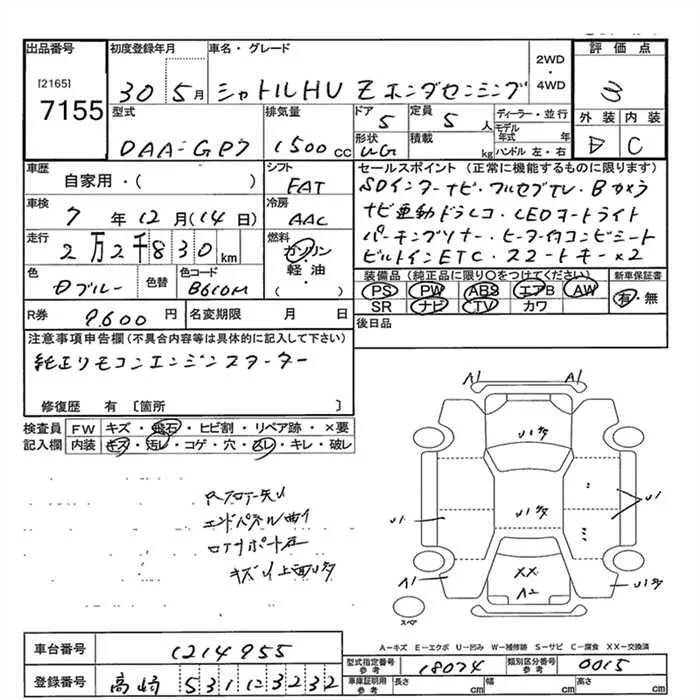 出品番号
[2165]
7155
初度登録年月
30 5月
車名・グレード
シャトルHV Z ホンダセンシング
2WD・4WD
評価点
3
外装 内装
D C
型式
DAA-GP7
排気量
1500cc
ドア
5
定員
5人
形状
WG
積載
kg
ディーラー・並行
モデル年式 年
ハンドル 左・右
車歴
自家用・( )
シフト
FAT
車検
7年12月(14日)
冷房
AAC
走行
2万2千830km
燃料
ガソリン
軽油
・( )
色
Dブルー
色替
色コード
B610M
R券
9.600円
名変期限 月 日
セールスポイント(正常に機能するものに限ります)
SDインターナビ・フルセグTV・Bカメラ
ナビ連動ドラレコ・LEDオートライト
パーキングソナー・ヒーター付コンビシート
ビルトインETC・スマートキー×2
装備品(純正品に限り○をつけてください)
PS PW ABS エアB AW
SR ナビ TV カワ
新車保証書
有・無
後日品
注意事項申告欄(不具合内容等は具体的に記入して下さい)
純正リモコンエンジンスターター
修復歴 有 [箇所 ]
検査員記入欄
FW キズ・飛石・ヒビ割・リペア跡・×要
内装 キズ・汚レ・コゲ・穴・スレ・キレ・破レ
エンドパネル曲り
A1 A1
U1キズ
U1キズ
U1 U1
XX
A2
A1
スペア
A-キズ E-エクボ U-凹み W-補修跡 S-サビ C-腐食 XX-交換済
車台番号
1214955
登録番号
高崎 531 に 3232
型式指定番号
参考
18074
類別区分番号
参考
0015
車庫証明用
参考
長さ cm 幅 cm 高さ cm